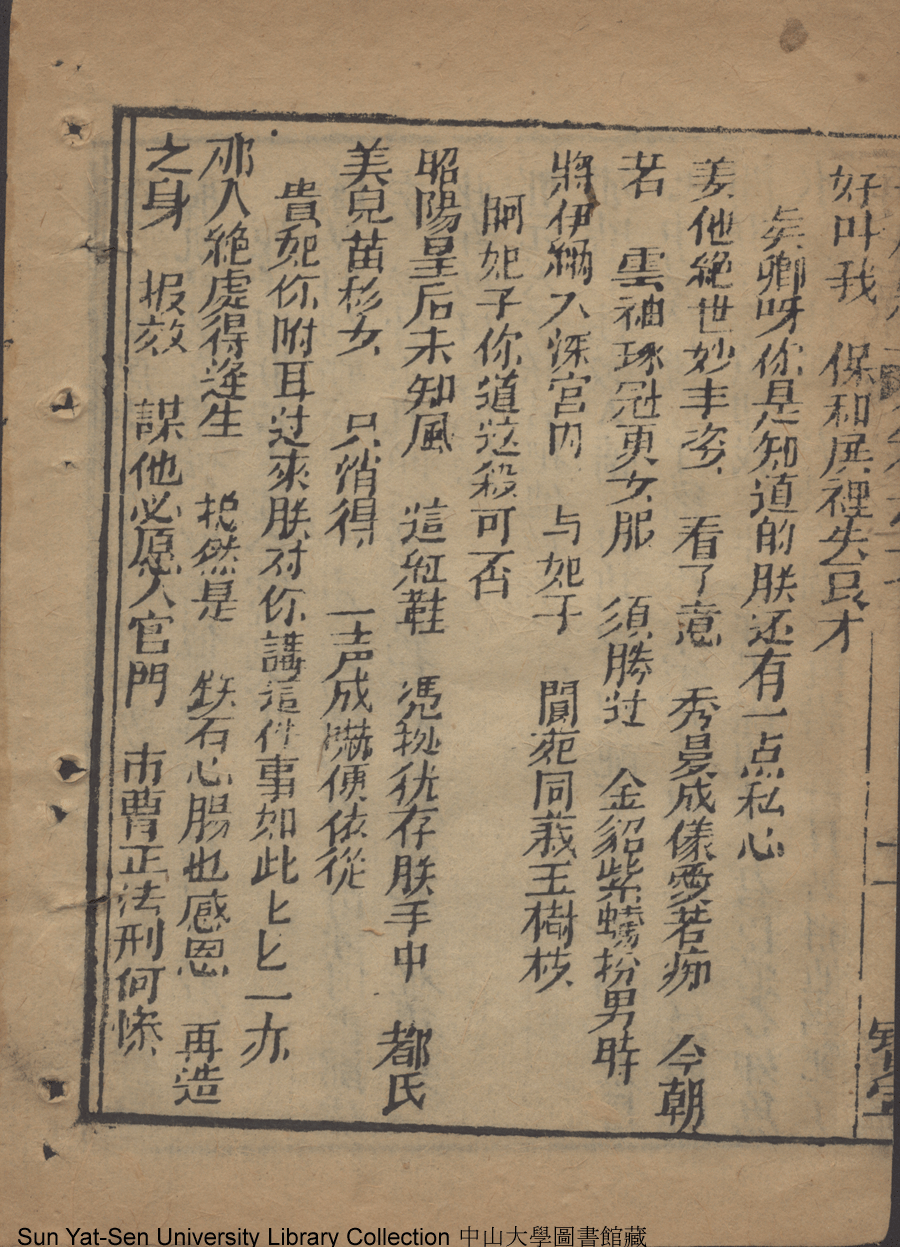 好叫我　保和殿裡失良才
矣卿呀你是知道的朕还有一点私心
羡他絶世妙丰姿　看了意　秀曼成様愛若痴　今朝
若　雲袖琢冠更女服　須勝过　金貂紫蟒扮男時
將伊納入深宫内　与妃子　閬苑同栽玉樹枝
阿妃子你道这殺可否
昭陽皇后未知風　這紅鞋　憑物犹存朕手中　都氏
美皃苗杉女　只悄得　一声成嚇便依從
貴妃你附耳过來朕对你講這件事如此匕匕一亦
那人絶處得逢生　挩然是　鉄石心腸也感恩　再造
之身　报效　謀他必愿入宫門　市曹正法刑何慘
Sun Yat-Sen University Library Collection 中山大學圖書館藏